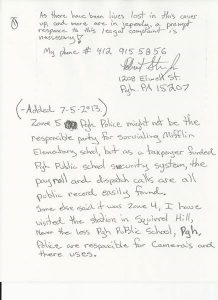 As there have been lives lost in this cover
up and more are in jeperdy, a prompt
response to this legal complaint is
nessessary!
My phone # 412 915 5856
1208 Elwell St.
Pgh. PA 15207
(-Added 7-5-2013)
Zone 5 Pgh Police might not be the
responsible party for servialing Mifflin
Elementary school, but as a taxpayer funded
Pgh Public school security system, the
payroll and dispatch calls are all
public record easily found.
Some else said it was Zone 4, I have
visited the station in Squirrel Hill,
Never the less Pgh Public School, Pgh,
Police are responcible for Camera's and
there uses.